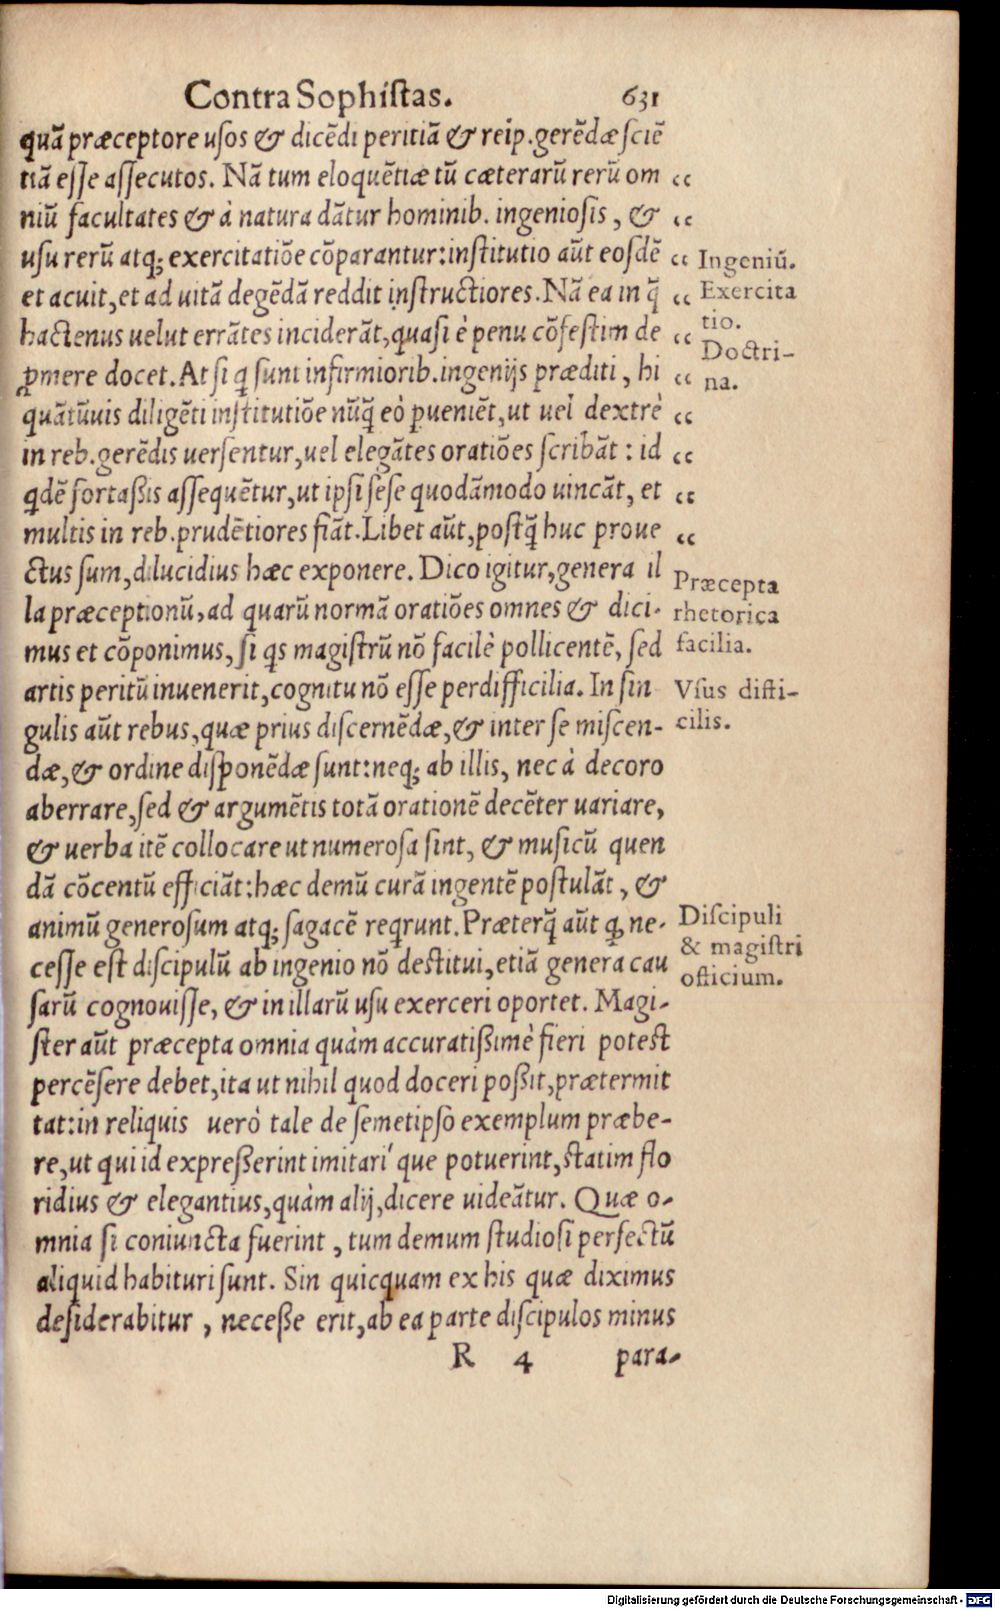 Contra Sophistas. 631
quā præceptore usos & dicēdi peritiā & reip̄. gerēdæ sciē
tiā esse assecutos. Nā tum eloquētiæ tū cæterarū rerū om “
niū facultates & à natura dātur hominib. ingeniosis, & “
usu rerū atq; exercitatiōe cōparantur: institutio aūt eosdē “
et acuit, et ad uitā degēdā reddit instructiores. Nā ea in q̄ “
hactenus uelut errātes inciderāt, quasi è penu cōfestim de “
ꝓmere docet. At si q̄ sunt infirmiorib. ingenijs præditi, hi “
quātūuis diligēti institutiōe nūq̄ eò ꝑueniēt, ut uel dextrè “
in reb. gerēdis uersentur, uel elegātes oratiōes scribāt: id “
qdē fortaßis assequētur, ut ipsi sese quodāmodo uincāt, et “
multis in reb. prudētiores fiāt. Libet aūt, postq̄ huc proue “
ctus sum, dilucidius hæc exponere. Dico igitur, genera il
la præceptionū, ad quarū normā oratiōes omnes & dici-
mus et cōponimus, si qs magistrū nō facilè pollicentē, sed
artis peritū inuenerit, cognitu nō esse perdifficilia. In sin
gulis aūt rebus, quæ prius discernēdæ, & inter se miscen-
dæ, & ordine disponēdæ sunt: neq; ab illis, nec à decoro
aberrare, sed & argumētis totā orationē decēter uariare,
& uerba itē collocare ut numerosa sint, & musicū quen
dā cōcentū efficiāt: hæc demū curā ingentē postulāt, &
animū generosum atq; sagacē reqrunt. Præterq̄ aūt ꝙ ne-
cesse est discipulū ab ingenio nō destitui, etiā genera cau
sarū cognouisse, & in illarū usu exerceri oportet. Magi-
ster aūt præcepta omnia quàm accuratißimè fieri potest
percēsere debet, ita ut nihil quod doceri poßit, prætermit
tat: in reliquis uerò tale de semetipso exemplum præbe-
re, ut qui id expreßerint imitari'que potuerint, statim flo
ridius & elegantius, quàm alij, dicere uideātur. Quæ o-
mnia si coniuncta fuerint, tum demum studiosi perfectū
aliquid habituri sunt. Sin quicquam ex his quæ diximus
desiderabitur, neceße erit, ab ea parte discipulos minus
R 4 para-
Ingeniū.
Exercita
tio.
Doctri-
na.
Præcepta
rhetorica
facilia.
Vsus diffi-
cilis.
Discipuli
& magistri
officium.
Digitalisierung gefördert durch die Deutsche Forschungsgemeinschaft - DFG